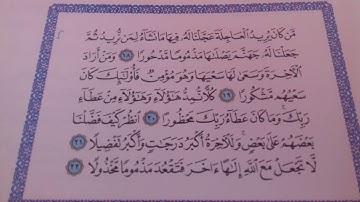 مَّن كَانَ يُرِيدُ الْعَاجِلَةَ عَجَّلْنَا لَهُ فِيهَا مَا نَشَاءُ لِمَن نُّرِيدُ ثُمَّ
جَعَلْنَا لَهُ جَهَنَّمَ يَصْلَىٰهَا مَذْمُومًا مَّدْحُورًا ١٨ وَمَنْ أَرَادَ
الْآخِرَةَ وَسَعَىٰ لَهَا سَعْيَهَا وَهُوَ مُؤْمِنٌ فَأُولَٰئِكَ كَانَ
سَعْيُهُم مَّشْكُورًا ١٩ كُلًّا نُّمِدُّ هَٰؤُلَاءِ وَهَٰؤُلَاءِ مِنْ عَطَاءِ
رَبِّكَ وَمَا كَانَ عَطَاءُ رَبِّكَ مَحْظُورًا ٢٠ انظُرْ كَيْفَ فَضَّلْنَا
بَعْضَهُمْ عَلَىٰ بَعْضٍ وَلَلْآخِرَةُ أَكْبَرُ دَرَجَٰتٍ وَأَكْبَرُ تَفْضِيلًا ٢١
لَّا تَجْعَلْ مَعَ اللَّهِ إِلَٰهًا ءَاخَرَ فَتَقْعُدَ مَذْمُومًا مَّخْذُولًا ٢٢